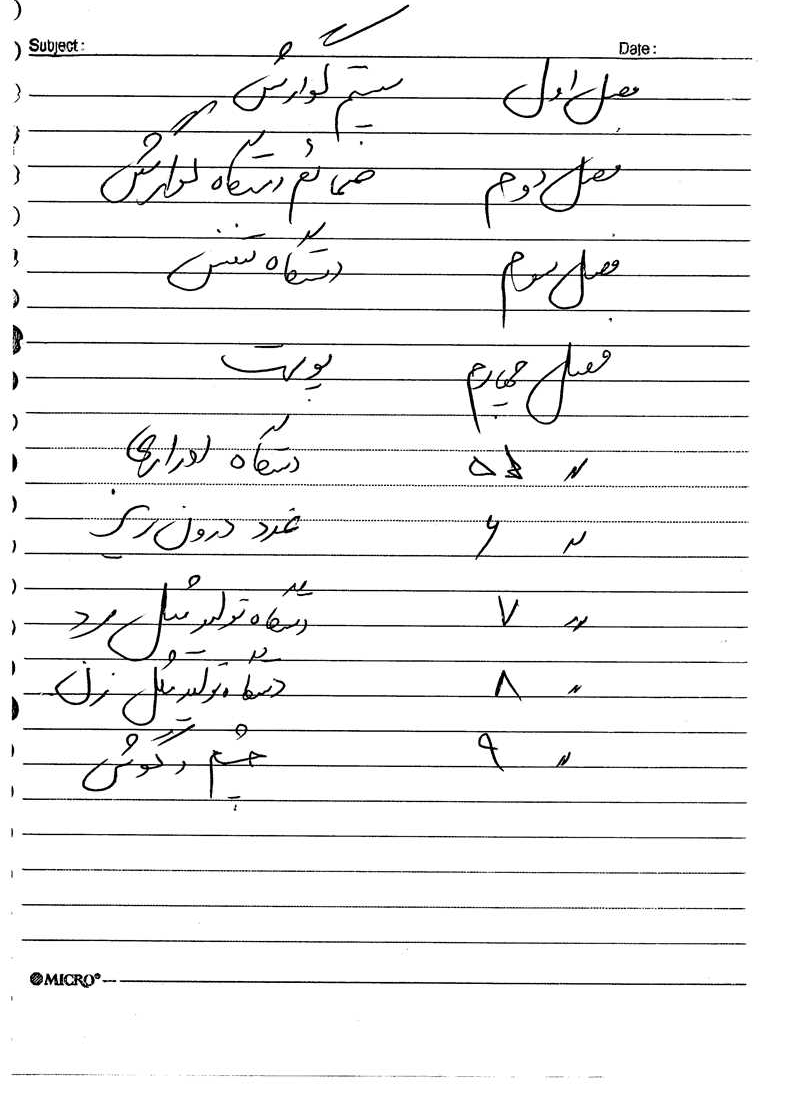 Subject: Date:
فصل اول سیستم گوارش
فصل دوم ضمائم دستگاه گوارش
فصل سوم دستگاه تنفس
فصل چهارم پوست
" ۵ دستگاه ادراری
" ۶ غدد درون ریز
" ۷ دستگاه تولید مثل مرد
" ۸ دستگاه تولید مثل زن
" ۹ چشم و گوش
MICRO